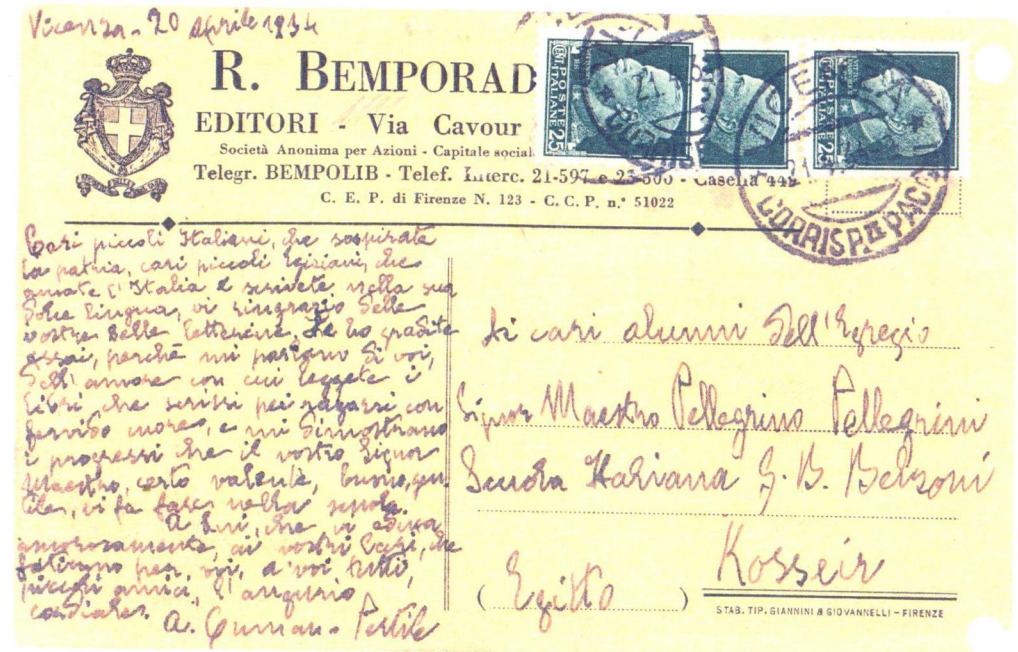 Vicenza - 20 aprile 1934
R. BEMPORAD
EDITORI - Via Cavour
Società Anonima per Azioni - Capitale sociale
Telegr. BEMPOLIB - Telef. Interc. 21-597 e 23-306 - Casella 442
C. E. P. di Firenze N. 123 - C. C. P. n.° 51022
POSTE
ITALIANE 25
POSTE
ITALIANE 25
VICENZA
CORRISP. PACC
Cari piccoli Italiani, che sospirate
la patria, cari piccoli Egiziani, che
amate l'Italia e scrivete nella sua
dolce lingua, vi ringrazio delle
vostre belle letterine. Le ho gradite
assai, perché mi parlano di voi,
dell'amore con cui leggete i
libri, che scrissi pei ragazzi con
fervido cuore, e mi dimostrano
i progressi che il vostro Signor
Maestro, certo valente, buono, gen
tile, vi fa fare nella scuola.
A Lui, che vi educa
amorosamente, ai vostri Cari, che
faticano per voi, a voi tutti,
piccoli amici, l'augurio
cordiale.
A. Cuman - Pertile
Ai cari alunni dell'Egregio
Signor Maestro Pellegrino Pellegrini
Scuola Italiana G. B. Belzoni
Kosseir
( Egitto )
STAB. TIP. GIANNINI & GIOVANNELLI - FIRENZE